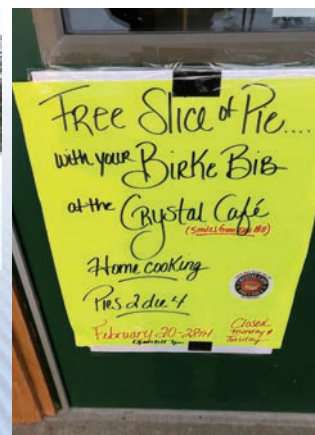 Free Slice of Pie....
with your Birke Bib
at the Crystal Café
(5 miles from
Home cooking
Pies 2 die 4
February 20-28th
Closed
Monday &
Tuesday